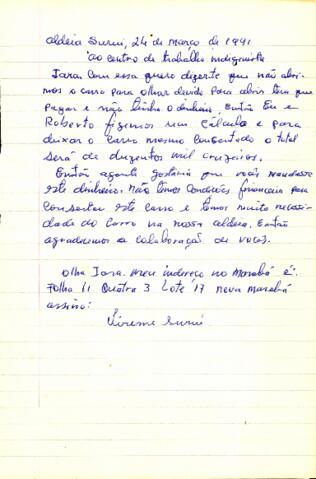 aldeia Surui, 24 de março de 1991
ao centro de trabalho indigenista
Iara. Com essa quero dizerte que não abri-
mos o carro para olhar devido para abrir tem que
pagar e não tinha o dinheiro. Então Eu e
Roberto fizemos um Cálculo e para
deixar o Carro mesmo Consertado o total
será de duzentos mil cruzeiros.
Então agente gostaria que vocês mandasse
este dinheiro. não temos Condições financeira para
Consertar este carro e temos muito necessi-
dade do Carro na nossa aldeia. Então
agradecemos a colaboração de vocês.
olha Iara. meu indereço no Marabá é:
Folha 11 Quatra 3 Lote 17 nova Marabá
assino:
Surui